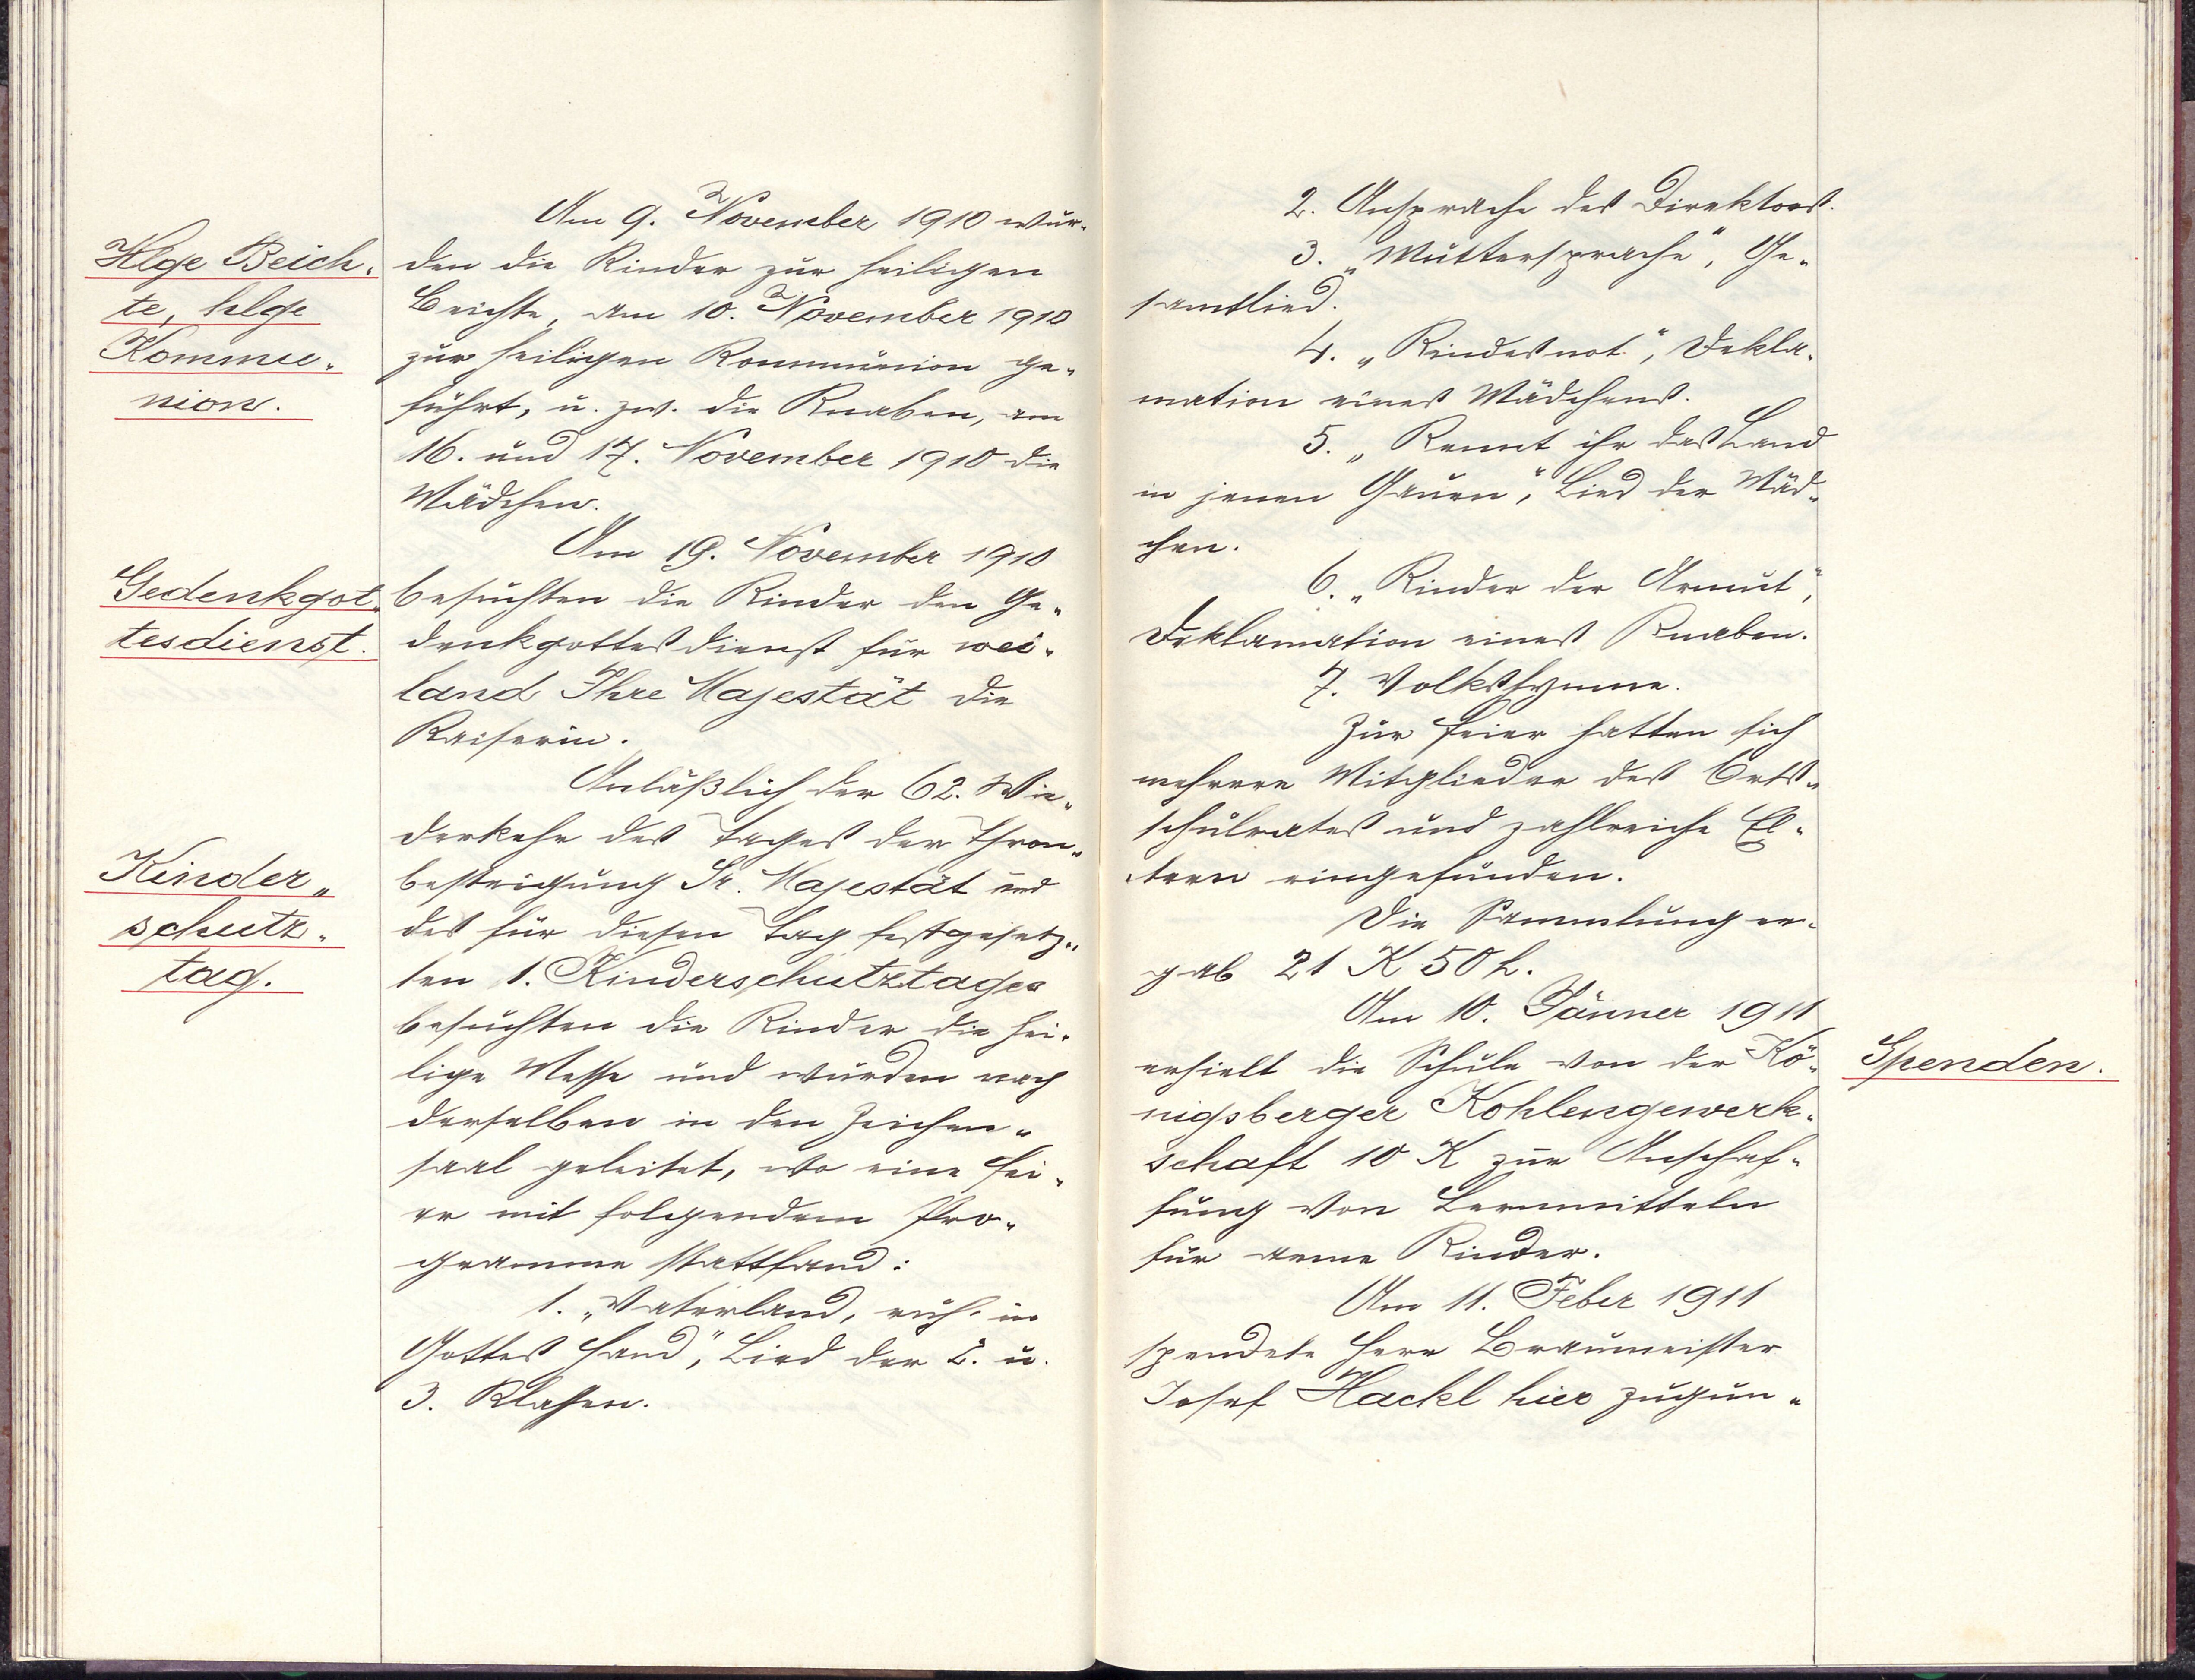 Hlge Beich-
te, hlge
Kommu-
nion.
Am 9. November 1910 wur-
den die Kinder zur heiligen
Beichte, am 10. November 1910
zur heiligen Kommunion ge-
führt, u. zw. die Knaben, am
16. und 17. November 1910 die
Mädchen.
Gedenkgot-
tesdienst.
Am 19. November 1910
besuchten die Kinder den Ge-
denkgottesdienst für wei-
land Ihre Majestät die
Kaiserin.
Kinder-
schutz-
tag.
Anläßlich der 62. Wie-
derkehr des Tages der Thron-
besteigung Sr. Majestät und
des für diesen Tag festgesetz-
ten 1. Kinderschutztages
besuchten die Kinder die hei-
lige Messe und wurden nach
derselben in den Zeichen-
saal geleitet, wo eine Fei-
er mit folgendem Pro-
gramme stattfand:
1. „Vaterland, ruh' in
Gottes Hand", Lied der 2. u.
3. Klassen.
2. Ansprache des Direktors.
3. „Muttersprache", Ge-
samtlied.
4. „Kindesnot", Dekla-
mation eines Mädchens.
5. „Kennt ihr das Land
in jenen Gauen", Lied der Mäd-
chen.
6. „Kinder der Armut",
Deklamation eines Knaben.
7. Volkshymne.
Zur Feier hatten sich
mehrere Mitglieder des Orts-
schulrates und zahlreiche El-
tern eingefunden.
Die Sammlung er-
gab 21 K 50 h.
Spenden.
Am 10. Jänner 1911
erhielt die Schule von der Kö-
nigsberger Kohlengewerk-
schaft 10 K zur Anschaf-
fung von Lernmitteln
für arme Kinder.
Am 11. Feber 1911
spendete Herr Braumeister
Josef Hackl hier zugun-